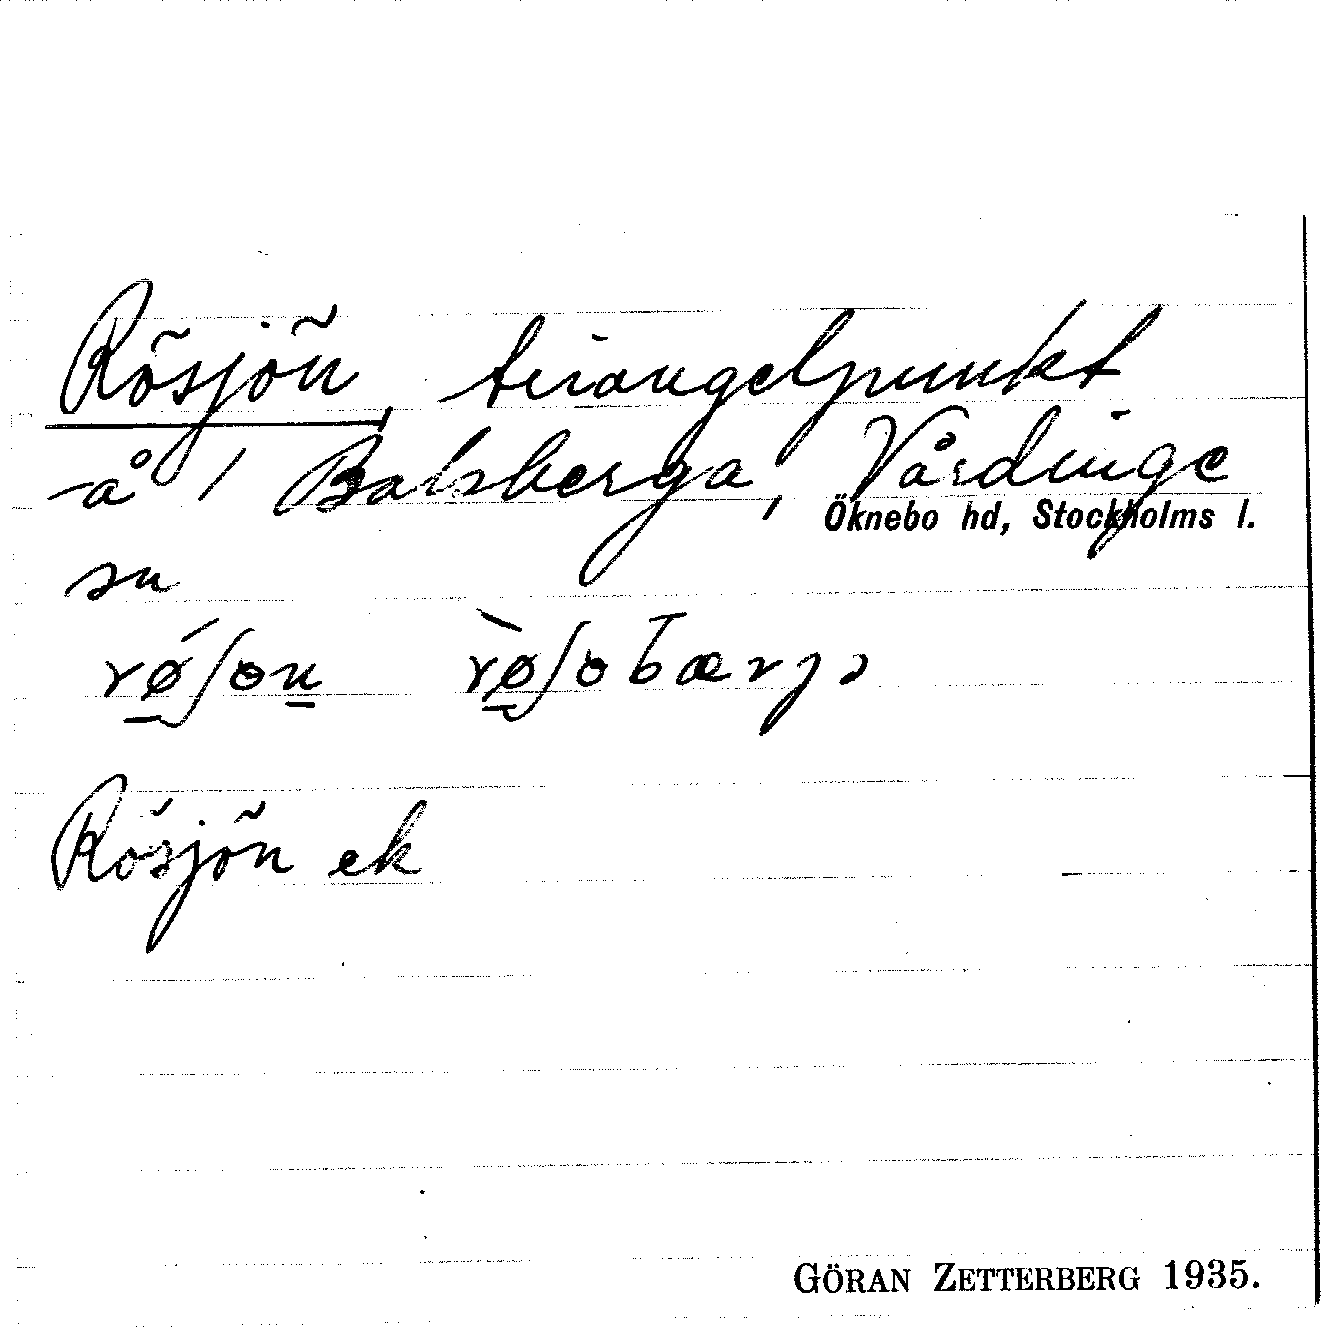 Rösjön, triangelpunkt
-å / Balsberga, Vårdinge
Öknebo hd, Stockholms l.
sn
rǿʃon rø̀ʃobærjə
Rösjön ek
GÖRAN ZETTERBERG 1935.